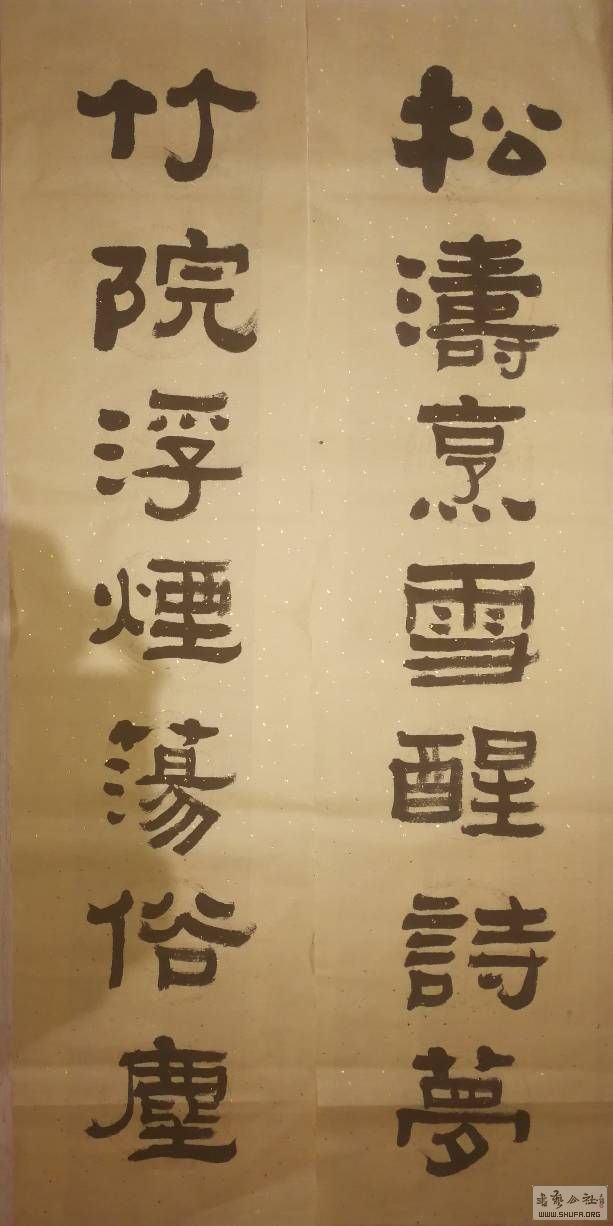 松濤烹雪醒詩夢
竹院浮煙蕩俗塵
书艺公社
WWW.SHUFA.ORG